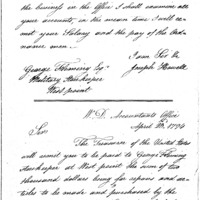 the business in the Office I shall examine all
your accounts, in the mean time I will re-
mit your Salary and the pay of the Ord-
nance men.
I am Sir &c
George Fleming Esqr Joseph Howell
Military Storekeeper
West point
W. D. Accountants Office
April 10th, 1794
Sir
The Treasurer of the United States
will remit you to be paid to George Fleming
Storekeeper at West point the sum of two
thousand dollars being for repairs and ar-
ticles to be made and purchased by the